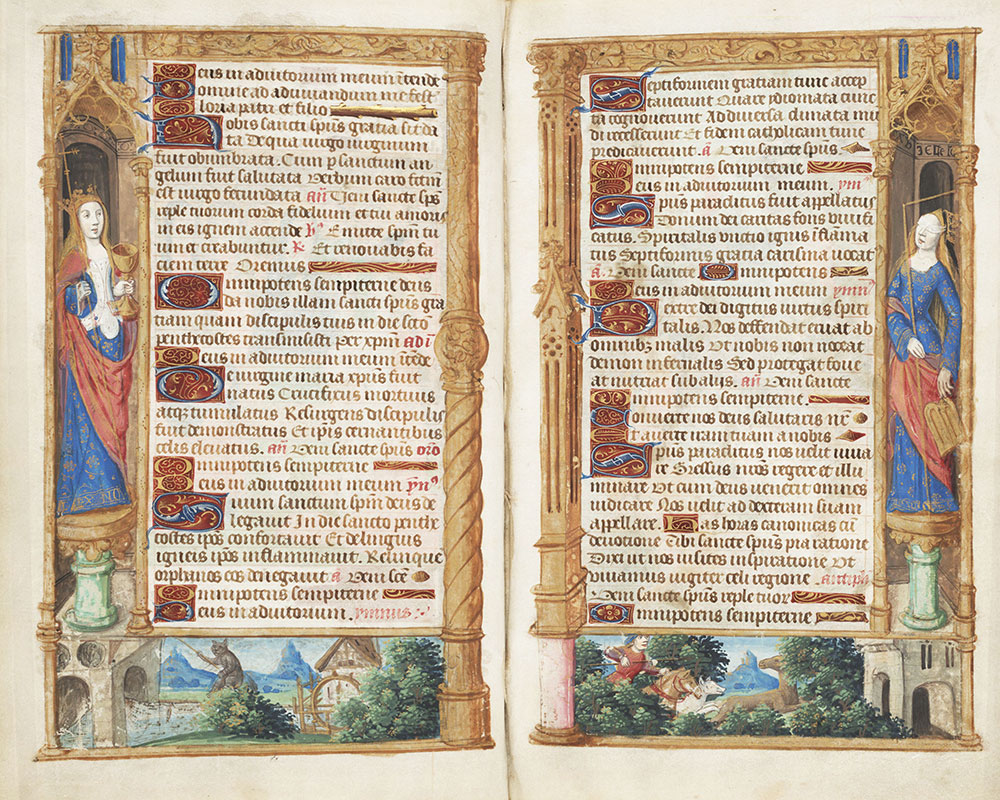 Deus in adiutorium meum intende
Domine ad adiuuandum me fest
Gloria patri et filio
Nobis sancti spus gratia sit da
ta De qua uirgo uirginum
fuit obumbrata. Cum p sanctum an
gelum fuit salutata Verbum caro factm
est uirgo fecundata añ Veni sancte sps
reple tuorum corda fidelium et tui amoris
in eis ignem accende Emitte spm tu
um et creabuntur. Et renouabis fa
ciem terre Oremus
Omnipotens sempiterne deus
da nobis illam sancti spus gra
tiam quam discipulis tuis in die scto
penthecostes transmisisti Per xpm adi
Deus in adiutorium meum intede
De uirgine maria xpus fuit
natus Crucifixus mortuus
atqz tumulatus Resurgens discipulis
fuit demonstratus Et ipis cernantibus
celis eleuatus. añ Veni sancte spus oro
Omnipotens sempiterne
Deus in adiutorium meum ym
Suum sanctum spm deus de
legauit In die sancto penthe
costes ipos confortauit Et de linguis
igneis ipos inflammauit. Relinque
orphanos eos denegauit a Veni sce
Omnipotens sempiterne
Deus in adiutorium. ymnus
Septiformem gratiam tunc accep
tauerunt Quare ydiomata cunc
ta cognouerunt Ad diuersa climata mu
di recesserunt Et fidem catholicam tunc
predicauerunt. a Veni sancte spus
Omnipotens sempiterne
Deus in adiutorium meum. ym
Spus paraclitus fuit appellatus
Donum dei caritas fons uiuifi
catus. Spiritalis unctio ignis inflama
tus Septiformis gratia carisma uocat
a Veni sancte Omnipotens
Deus in adiutorium meum ymn
Dextre dei digitus uirtus spiri
talis. Nos deffendat eruat ab
omnibz malis Vt nobis non noceat
demon infernalis Sed protegat foue
at nutriat sub alis. añ Veni sancte
Omnipotens sempiterne
Conuerte nos deus salutaris nr
Et auerte iram tuam a nobis
Spus paraclitus nos uelit iuua
re Gressus nros regere et illu
minare Vt cum deus uenerit omnes
iudicare Nos uelit ad dexteram suam
appellare. Has horas canonicas cu
deuotione Tibi sancte spus pia ratione
Dixi ut nos uisites inspiratione Vt
uiuamus iugiter celi regione. antiph
Veni sancte spus reple tuor
Omnipotens sempiterne